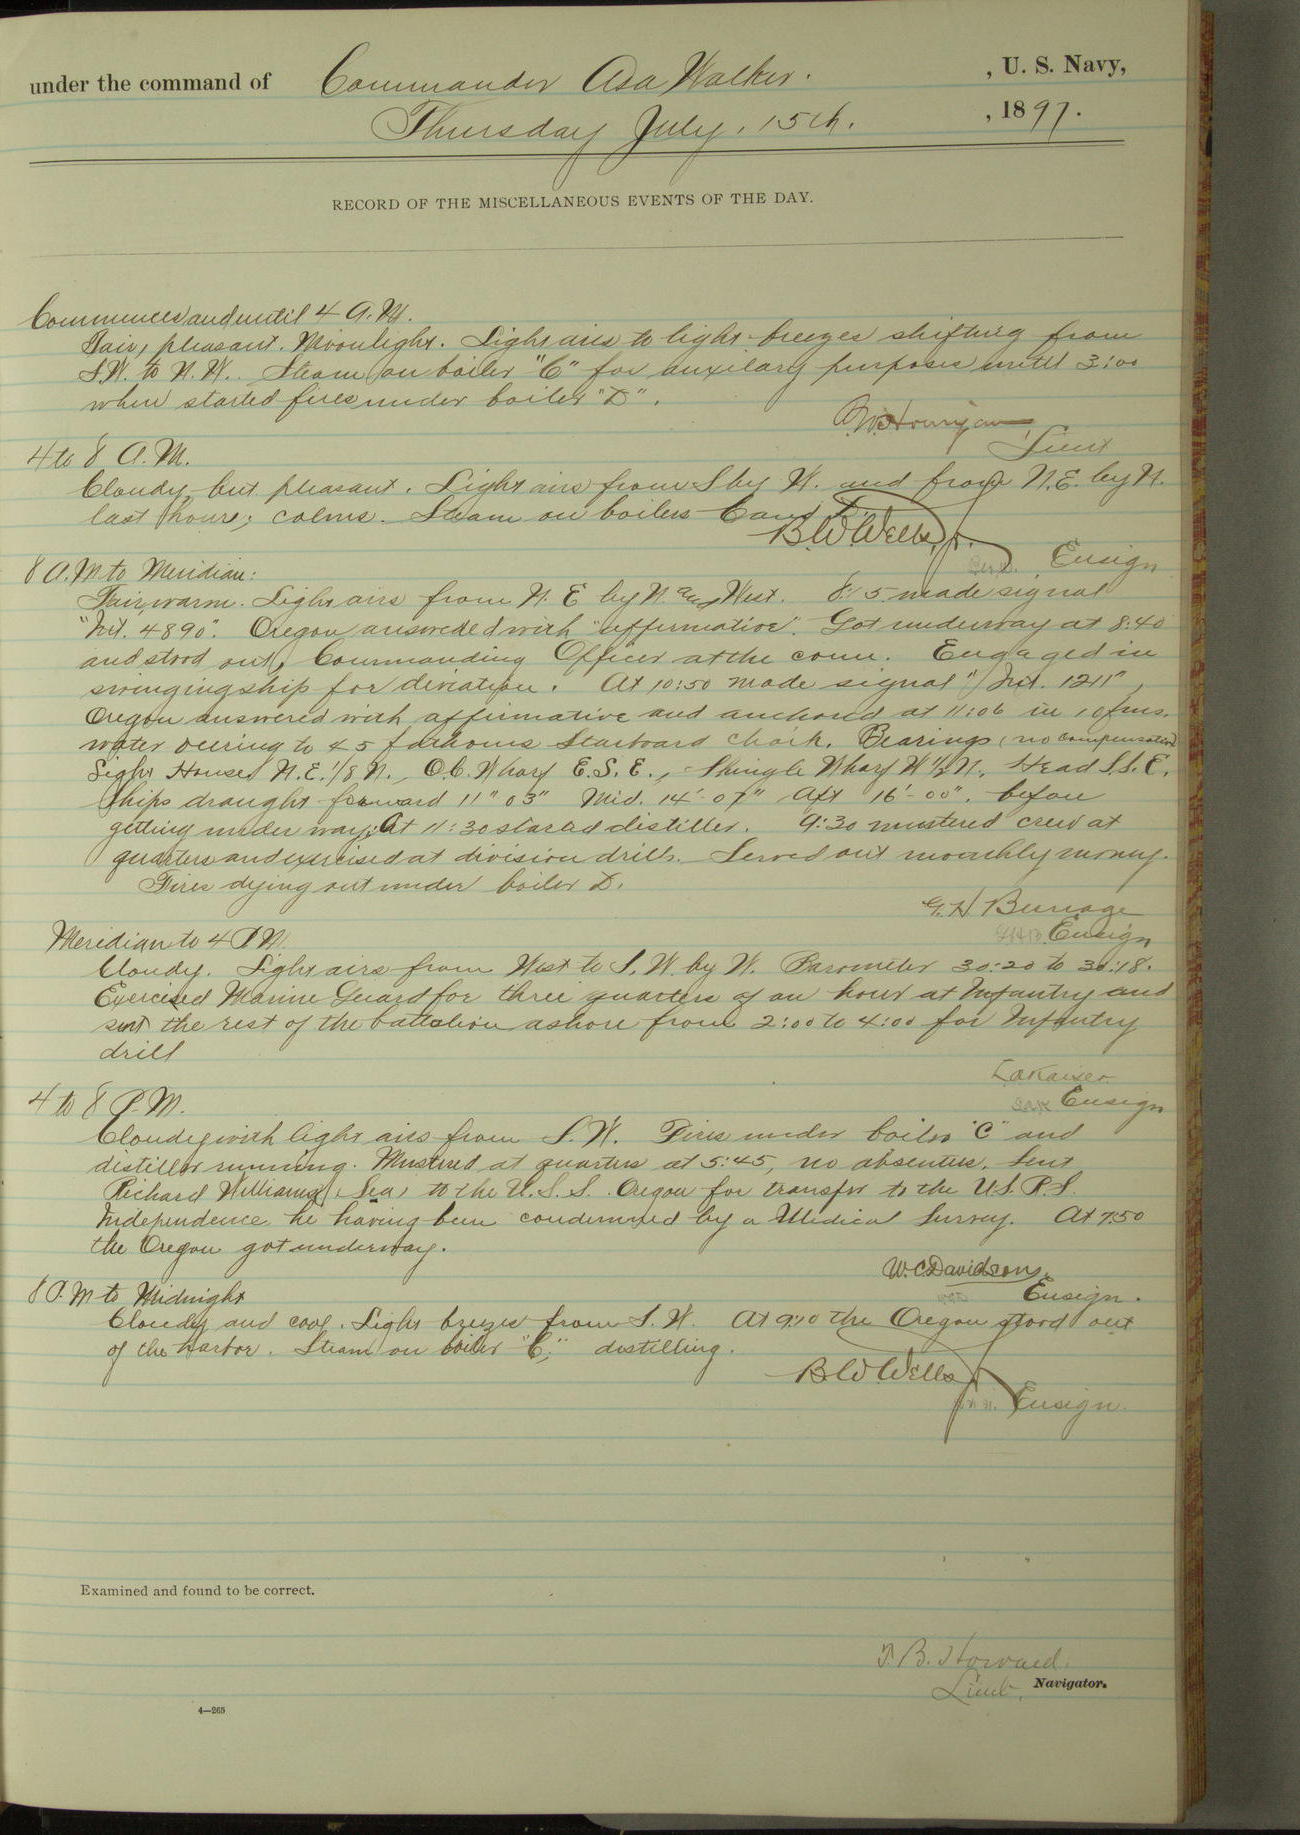 under the command of Commander Asa Walker. , U. S. Navy,
Thursday July, 15th. , 1897.
RECORD OF THE MISCELLANEOUS EVENTS OF THE DAY.
Commences and until 4 A.M.
Fair, pleasant. Moonlight. Light airs to light breezes shifting from
S.W. to N.W. Steam on boiler "C" for auxilary purposes until 3:00
when started fires under boiler "D".
Lieut
4 to 8 A.M.
Cloudy, but pleasant. Light airs from S by W. and from N.E. by N.
last hour; calms. Steam on boilers C and D.
B.W. Wells, Jr.
Ensign
8 A.M to Meridian:
Fair, warm. Light airs from N. E by N. and West. 8:15 made signal
"Int. 4890". Oregon answered with "affirmative". Got underway at 8:40
and stood out, Commanding Officer at the conn. Engaged in
swinging ship for deviation. At 10:50 made signal "Int. 1211",
Oregon answered with affirmative and anchored at 11:06 in 10 fms.
water veering to 45 fathoms Starboard chain. Bearings (no compensation)
Light House N.E. 1/8 N., O.C. Wharf E.S.E., Shingle Wharf W 1/2 N., Head S.S.E.
Ships draught forward 11" 03" Mid. 14'-07" Aft 16'-00". before
getting under way. At 11:30 started distiller. 9:30 mustered crew at
quarters and exercised at division drills. Served out monthly money.
Fires dying out under boiler D.
G. H Burrage
Ensign
Meridian to 4 P.M.
Cloudy. Light airs from West to S.W. by W. Barometer 30:20 to 30:18.
Exercised Marine Guard for three quarters of an hour at Infantry and
sent the rest of the battalion ashore from 2:00 to 4:00 for Infantry
drill
L.A Kaiser
Ensign
4 to 8 P.M.
Cloudy with light airs from S.W. Fires under boiler "C" and
distiller running. Mustered at quarters at 5:45, no absentees. Sent
Richard Williams, (Sea) to the U.S.S. Oregon for transfer to the U.S.R.S.
Independence he having been condemned by a Medical Survey. At 7:50
the Oregon got underway.
W.C Davidson,
Ensign.
8 P.M to Midnight
Cloudy and cool. Light breezes from S.W. At 9:10 the Oregon stood out
of the harbor. Steam on boiler "C," distilling.
B.W. Wells Jr
Ensign.
Examined and found to be correct.
T. B. Howard.
Lieut, Navigator.
4—265